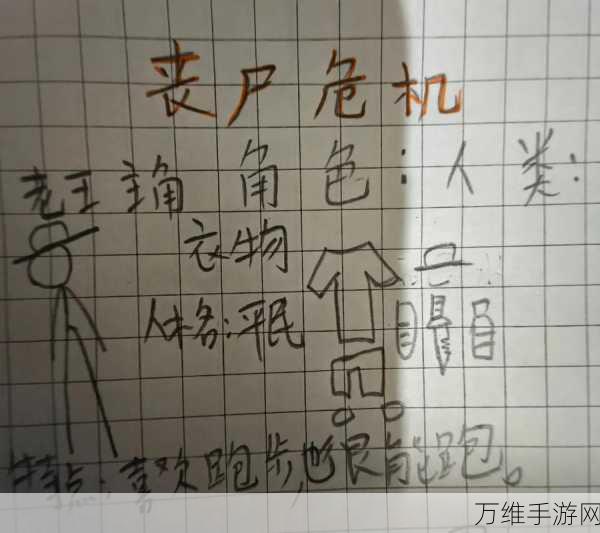 丧尸危机
老王 主角 角色：人类：
衣物
人格：平民
特点：喜欢跑步，也很能跑。
万维手游网